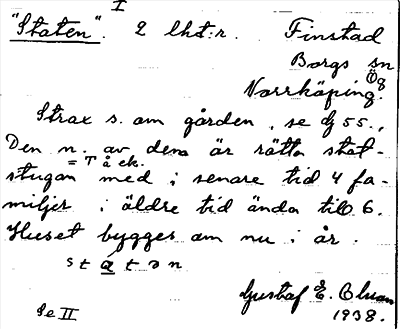 I
"Staten". 2 lht:r. Finstad
Borgs sn
Ög
Norrköping.
Strax s. om gården, se dj 55.,
Den n. av dem är rätta stat-
= Tåek.
stugan med i senare tid 4 fa-
miljer i äldre tid ända till 6.
Huset bygges om nu i år.
stątən
Gustaf E. Olsson
1938.
Se II